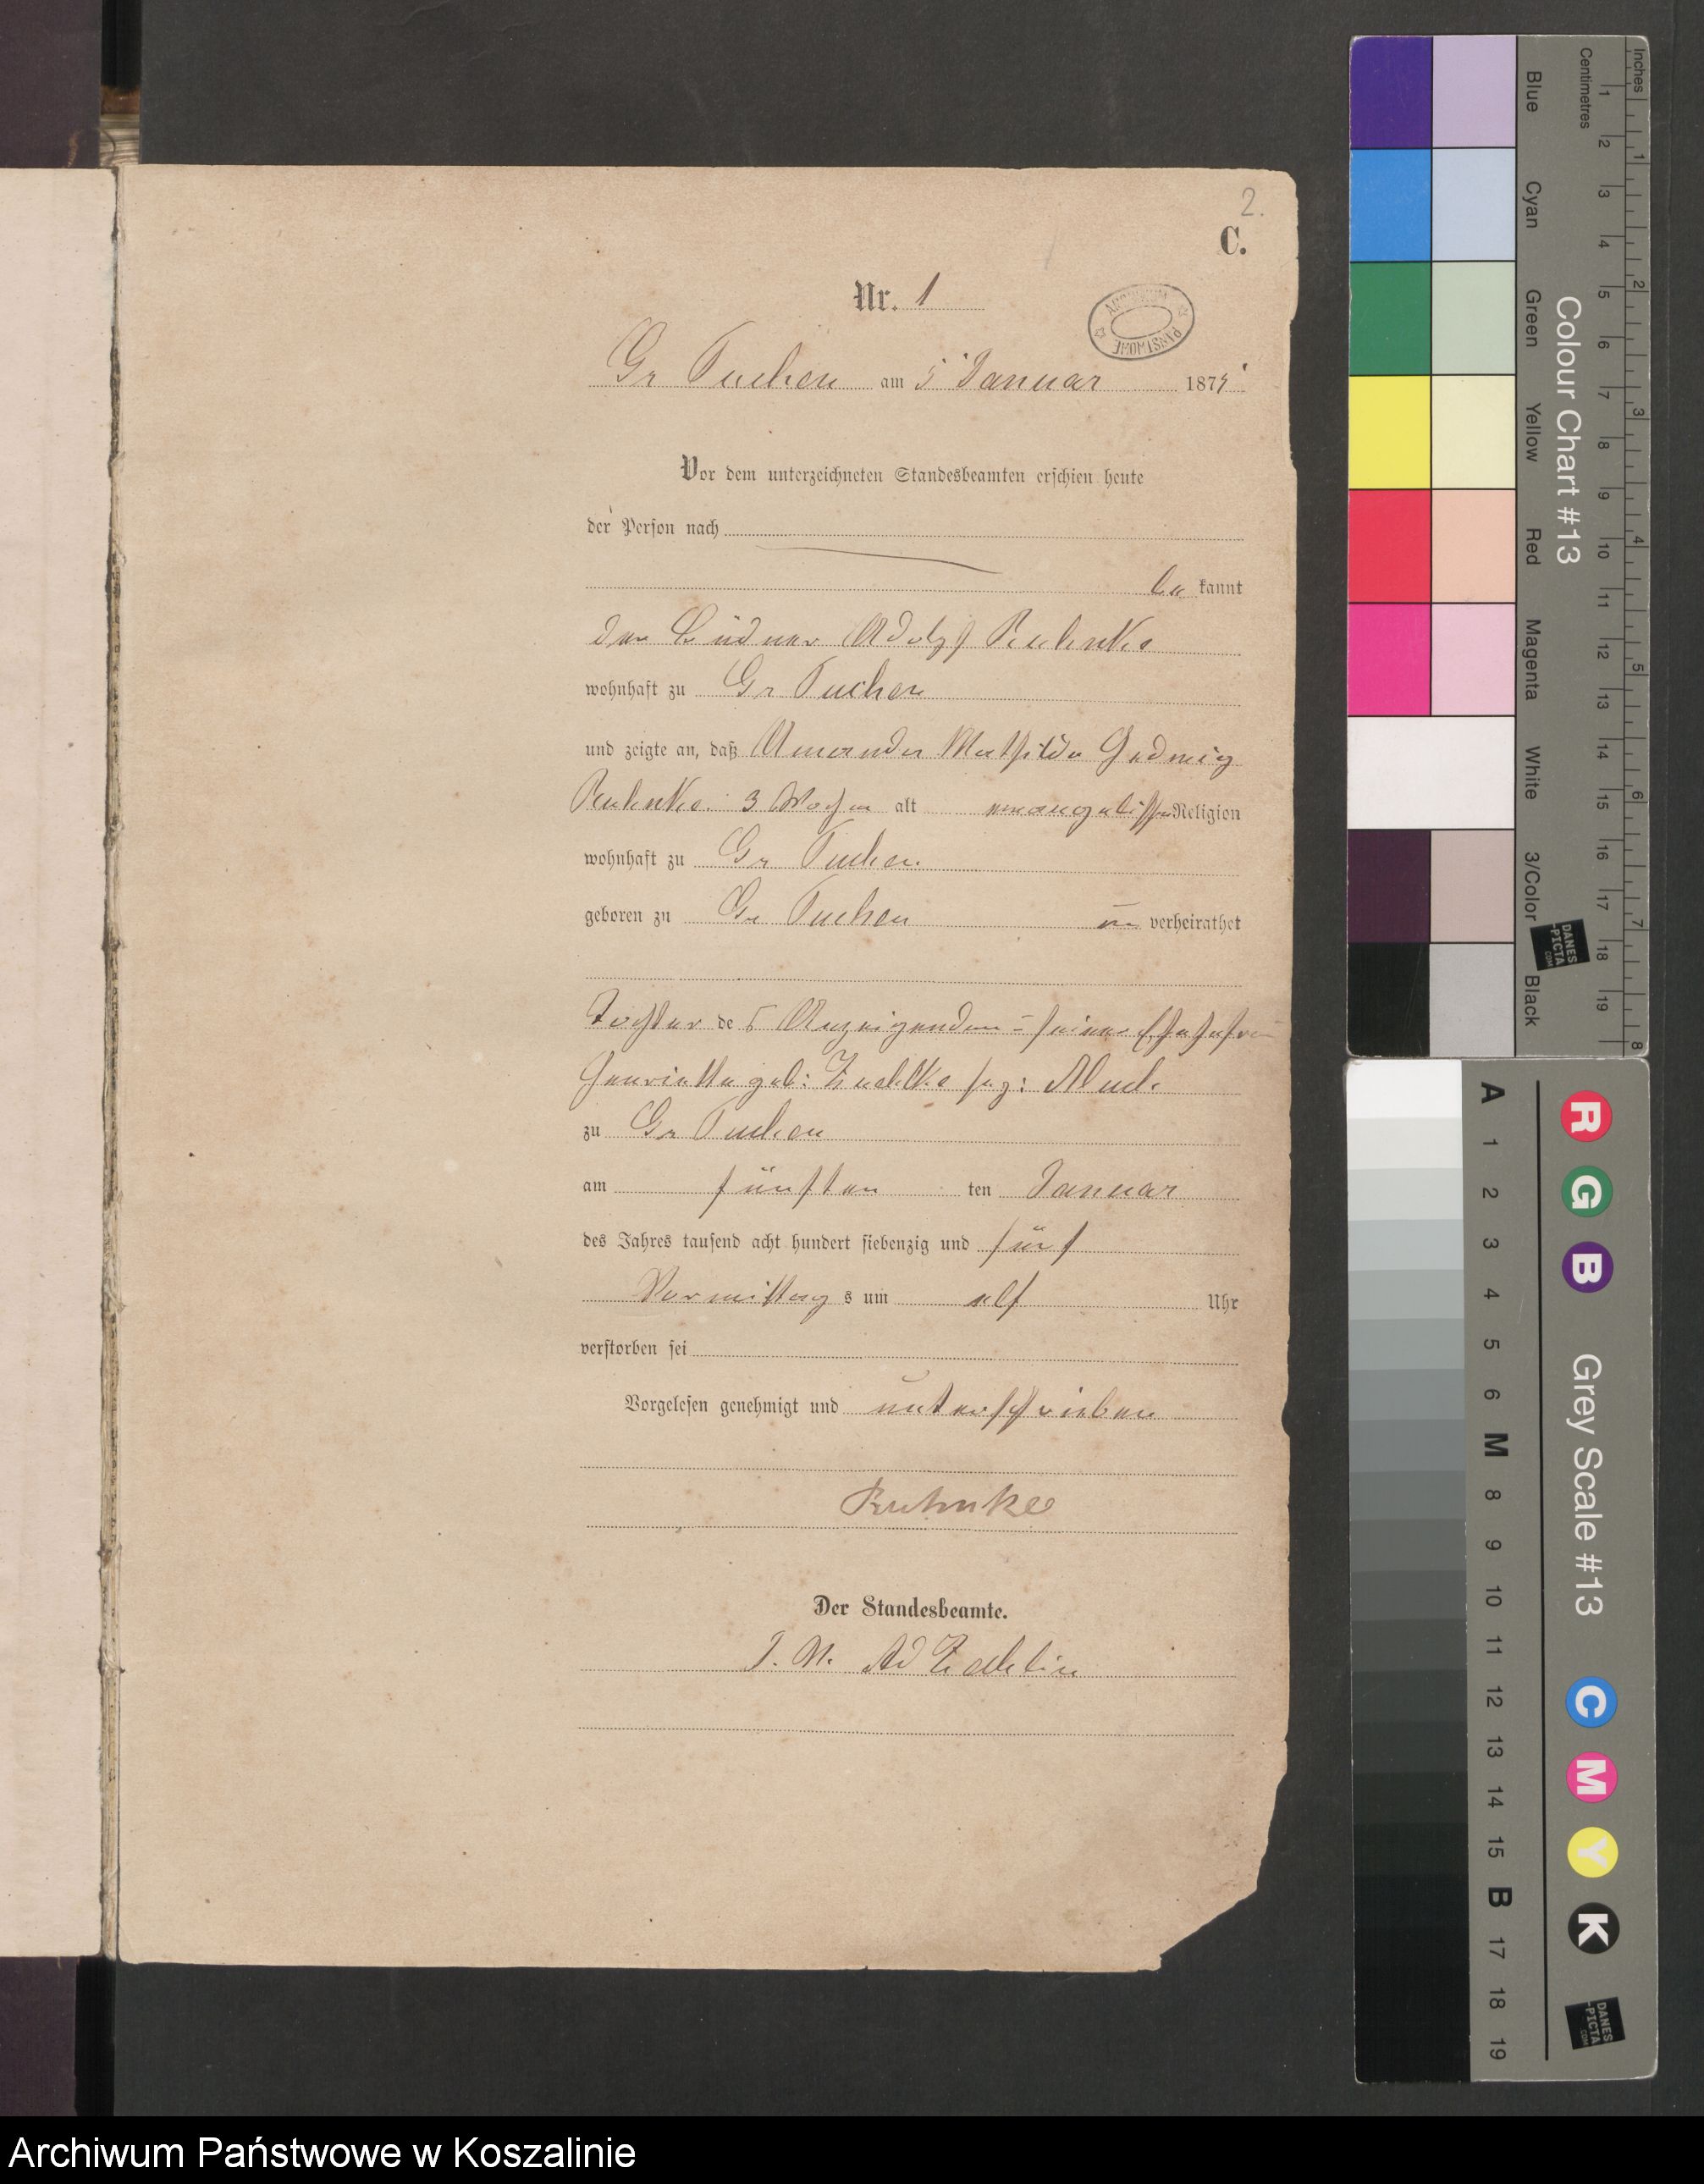 2.
C.
Nr. 1
ARCHIWUM PAŃSTWOWE
Gr Tuchen am 5 Januar 1875
Vor dem unterzeichneten Standesbeamten erschien heute
der Person nach
be kannt
der Büdner Adolph
wohnhaft zu Gr Tuchen
und zeigte an, daß Amanda Mathilde Hedwig
3 Wochen alt evangelischer Religion
wohnhaft zu Gr Tuchen
geboren zu Gr Tuchen un verheirathet
Tochter de s Anzeigenden = seiner Ehefrau
Henriette geb:
zu Gr Tuchen
am fünften ten Januar
des Jahres tausend acht hundert siebenzig und fünf
Vormittag s um elf Uhr
verstorben sei
Vorgelesen genehmigt und unterschrieben
Ruhnke
Der Standesbeamte.
Inches
Centimetres
1 2 3 4 5 6 7 8 9 10 11 12 13 14 15 16 17 18 19
1 2 3 4 5 6 7 8
Colour Chart #13
Blue Cyan Green Yellow Red Magenta White 3/Color Black
DANES
-PICTA
.COM
R G B
Grey Scale #13
C M Y K
A 1 2 3 4 5 6 M 8 9 10 11 12 13 14 15 B 17 18 19
DANES
-PICTA
.COM
Archiwum Państwowe w Koszalinie